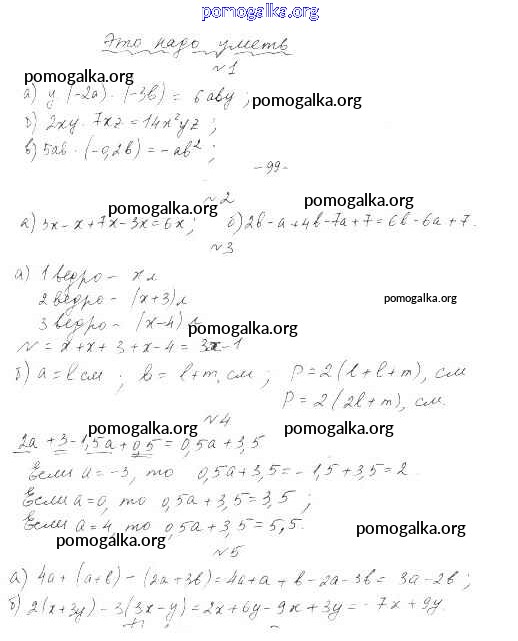 pomogalka.org
Это надо уметь
№1
pomogalka.org
а) y·(-2a)·(-3b) = 6aby; pomogalka.org
б) 2xy·7xz = 14x²yz;
в) 5ab·(-0,2b) = -ab²;
-99-
№2
pomogalka.org pomogalka.org
а) 3x-x+7x-3x=6x; б) 2b-a+4b-7a+7=6b-6a+7.
№3
а) 1 ведро - x л
2 ведро - (x+3) л
pomogalka.org
3 ведро - (x-4) л
pomogalka.org
N = x+x+3+x-4 = 3x-1
б) a=l см; b=l+m, см; P=2(l+l+m), см
P=2(2l+m), см.
№4
pomogalka.org pomogalka.org
2a+3-1,5a+0,5=0,5a+3,5
Если a=-3, то 0,5a+3,5=-1,5+3,5=2.
Если a=0, то 0,5a+3,5=3,5;
Если a=4 то 0,5a+3,5=5,5.
pomogalka.org
pomogalka.org
№5
а) 4a+(a+b)-(2a+3b)=4a+a+b-2a-3b=3a-2b;
б) 2(x+3y)-3(3x-y)=2x+6y-9x+3y=-7x+9y.